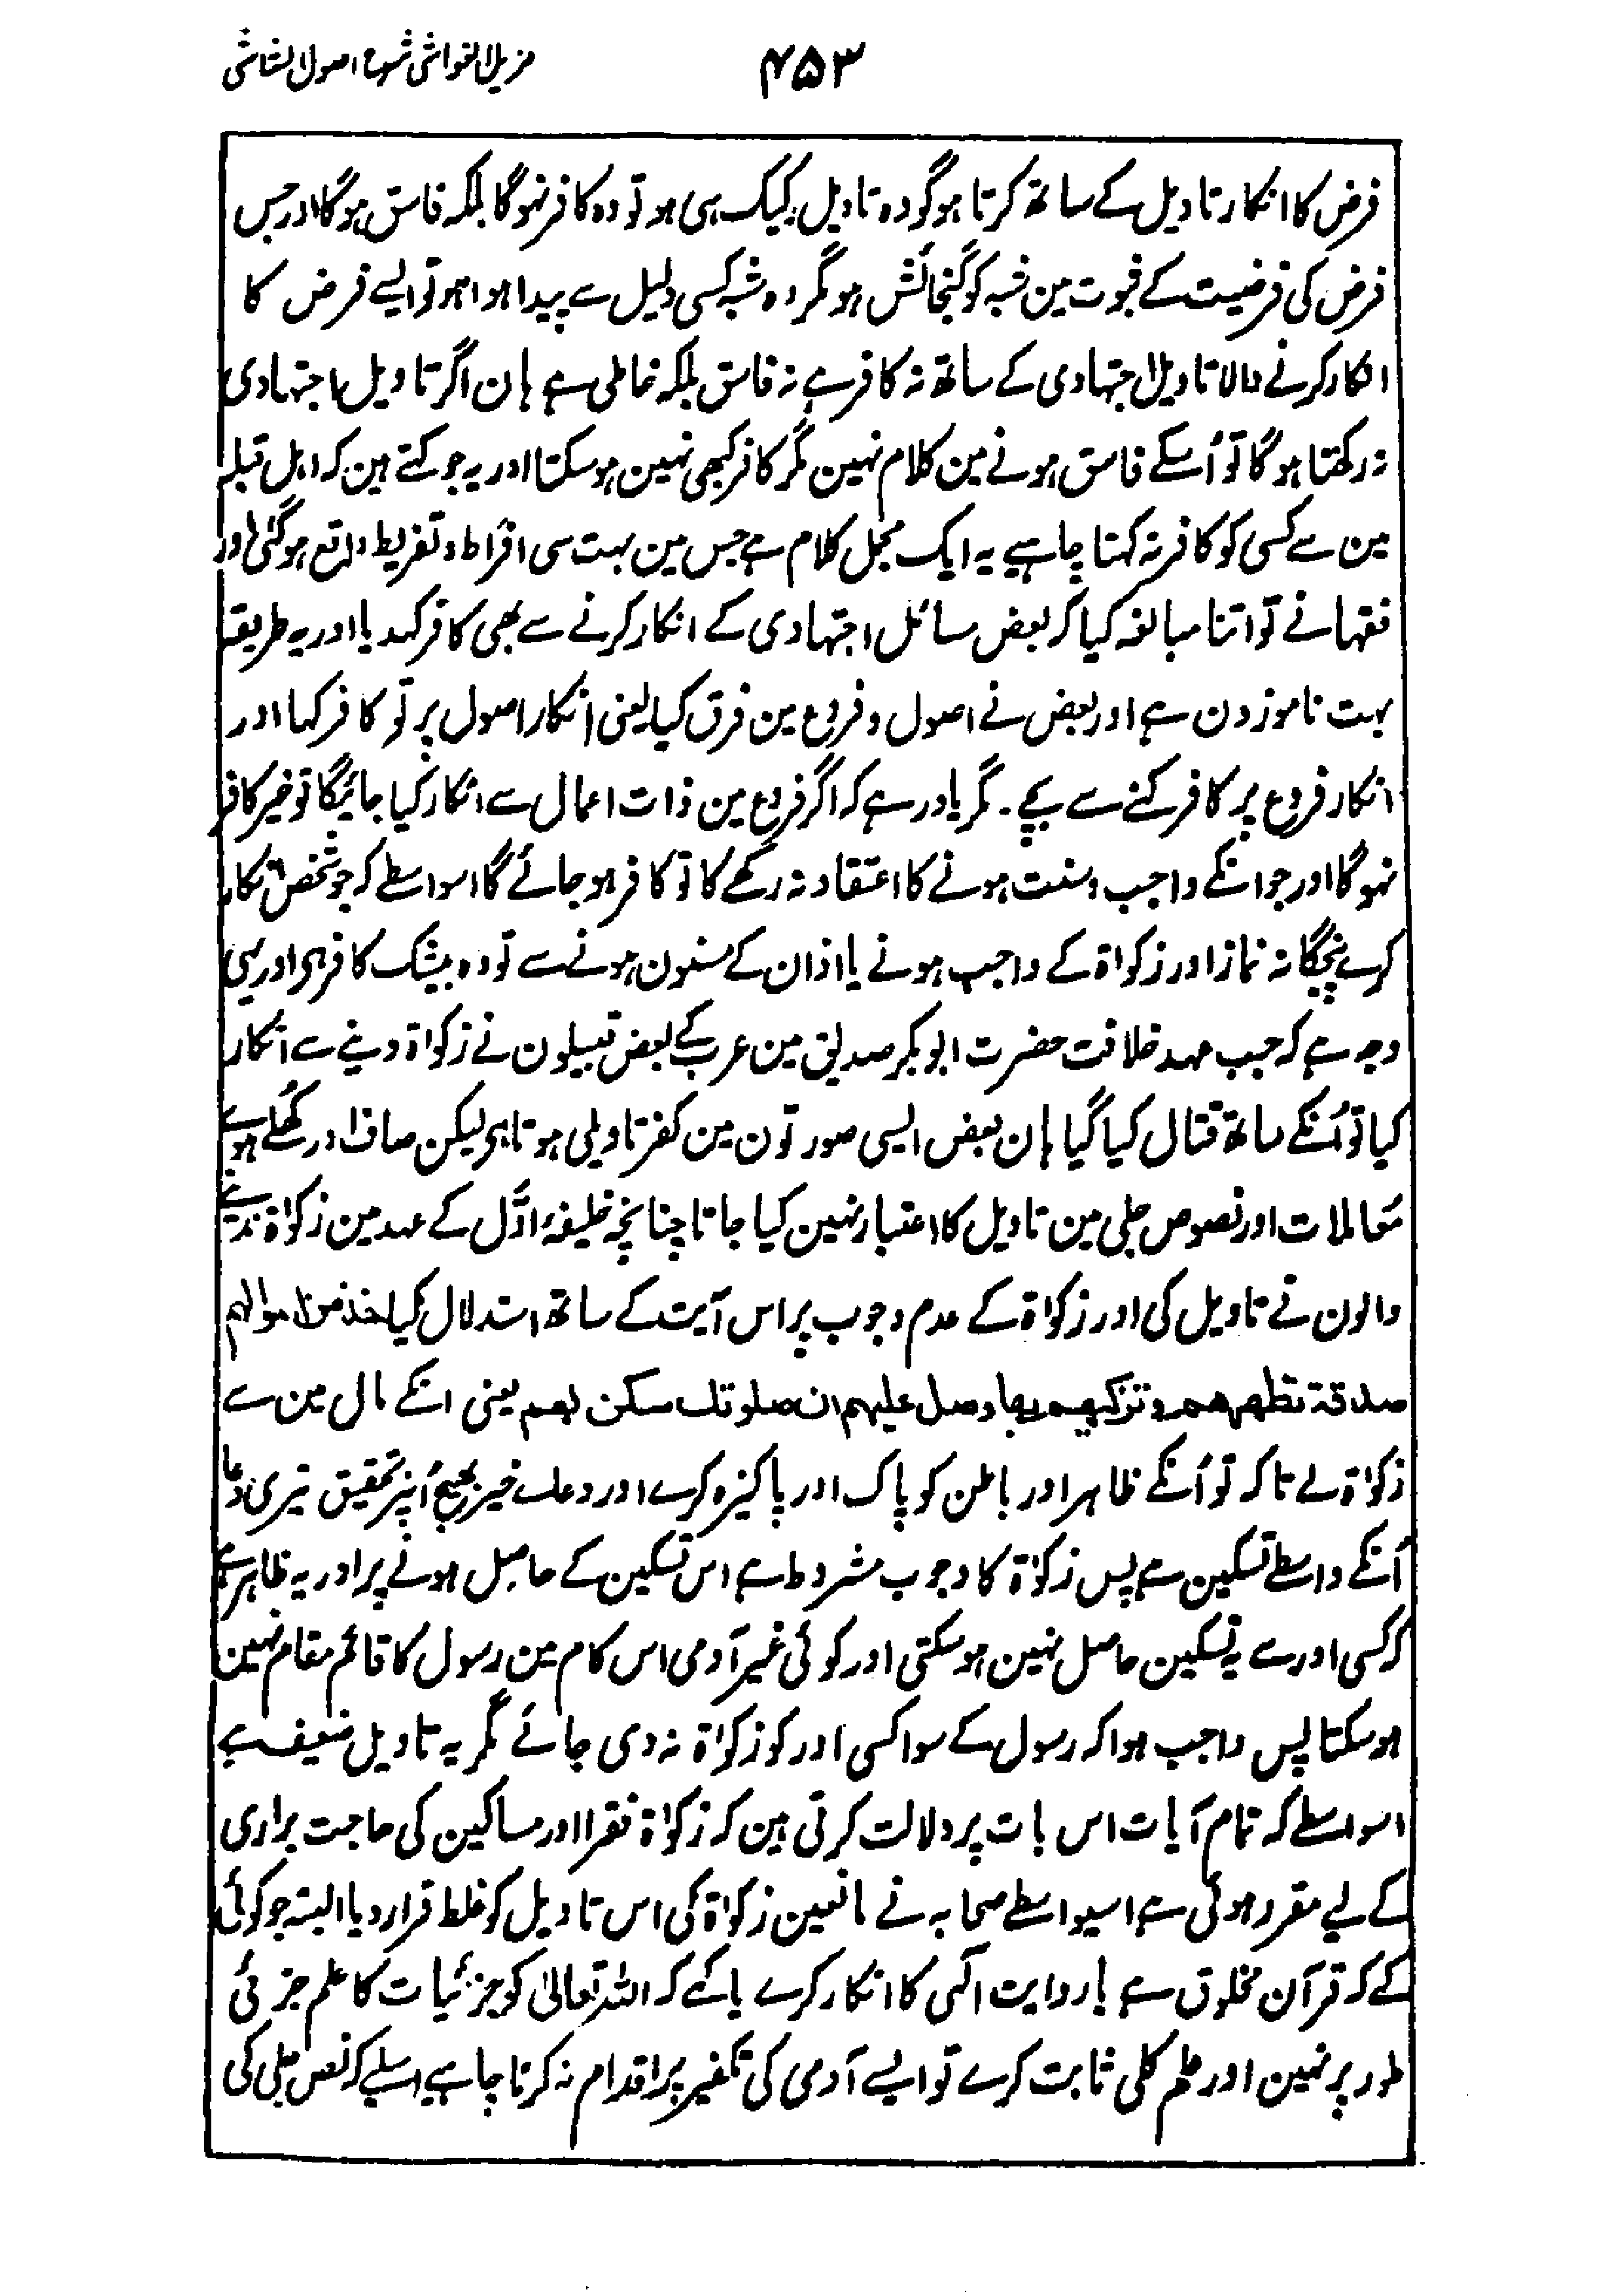 مزیل الغواشی شرح اصول الشاشی
۴۵۳
فرض کا انکار تاویل کے ساتھ کرتا ہو گو وہ تاویل رکیک ہی ہو تو وہ کافر نہوگا بلکہ فاسق ہوگا اور جس
فرض کی فرضیت کے ثبوت مین شبہ کو گنجائش ہو مگر وہ شبہ کسی دلیل سے پیدا ہوا ہو تو ایسے فرض کا
انکار کرنے والا تاویل اجتہادی کے ساتھ نہ کافر ہے نہ فاسق بلکہ خاطی ہے ہان اگر تاویل اجتہادی
نہ رکھتا ہوگا تو اُسکے فاسق ہونے مین کلام نہین مگر کافر کبھی نہین ہوسکتا اور یہ جو کہتے ہین کہ اہل قبلہ
مین سے کسی کو کافر نہ کہنا چاہیے یہ ایک مجمل کلام ہے جس مین بہت سی افراط و تفریط واقع ہوگئی اور
فقہا نے تو اتنا مبالغہ کیا کہ بعض مسائل اجتہادی کے انکار کرنے سے بھی کافر کہدیا اور یہ طریقہ
بہت ناموزون ہے اور بعض نے اصول و فروع مین فرق کیا یعنی انکار اصول پر تو کافر کہا اور
انکار فروع پر کافر کہنے سے بچے ۔ مگر یاد رہے کہ اگر فروع مین ذات اعمال سے انکار کیا جائیگا تو خیر کافر
نہوگا اور جو انکے واجب و سنت ہونے کا اعتقاد نہ رکھے گا تو کافر ہو جائے گا اسواسطے کہ جو شخص انکار
کرے پنجگانہ نماز اور زکواۃ کے واجب ہونے یا اذان کے مسنون ہونے سے تو وہ بیشک کافر ہی اور یہی
وجہ ہے کہ جب عہد خلافت حضرت ابوبکر صدیق مین عرب کے بعض قبیلون نے زکواۃ دینے سے انکار
کیا تو اُنکے ساتھ قتال کیا گیا ہان بعض ایسی صورتون مین کفر تاویلی ہوتا ہی لیکن صاف اور کُھلے ہوے
معاملات اور نصوص جلی مین تاویل کا اعتبار نہین کیا جاتا چنانچہ خلیفۂ اوّل کے عہد مین زکواۃ ندینے
والون نے تاویل کی اور زکواۃ کے عدم وجوب پر اس آیت کے ساتھ استدلال کیا خذ من اموالہم
صدقۃ تطھرھم و تزکیھم بھا وصل علیہم ان صلوتک سکن لھم یعنی انکے مال مین سے
زکواۃ لے تاکہ تو اُنکے ظاہر اور باطن کو پاک اور پاکیزہ کرے اور دعاے خیر بھیج اُنپر تحقیق تیری دعا
اُنکے واسطے تسکین ہے پس زکواۃ کا وجوب مشروط ہے اس تسکین کے حاصل ہونے پر اور یہ ظاہر ہے
کہ کسی اور سے یہ تسکین حاصل نہین ہوسکتی اور کوئی غیر آدمی اس کام مین رسول کا قائم مقام نہین
ہوسکتا پس واجب ہوا کہ رسول کے سوا کسی اور کو زکواۃ نہ دی جائے مگر یہ تاویل ضعیف ہے
اسواسطے کہ تمام آیات اس بات پر دلالت کرتی ہین کہ زکواۃ فقرا اور مساکین کی حاجت براری
کے لیے مقرر ہوئی ہے اسیواسطے صحابہ نے مانعین زکواۃ کی اس تاویل کو غلط قرار دیا البتہ جو کوئی
کہے کہ قرآن مخلوق ہے یا رویت الٰہی کا انکار کرے یا کہے کہ اللہ تعالیٰ کو جزئیات کا علم جزئی
طور پر نہین اور علم کلی ثابت کرے تو ایسے آدمی کی تکفیر پر اقدام نہ کرنا چاہیے اسلیے کہ نص جلی کی